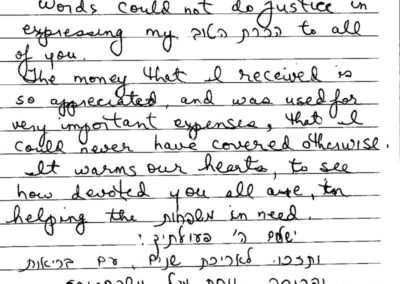 Words could not do justice in
expressing my הכרת הטוב to all
of you.
The money that I received is
so appreciated, and was used for
very important expenses, that I
could never have covered otherwise.
It warms our hearts, to see
how devoted you all are, in
helping the משפחות in need.
ישלם ה' פעולתיך:
ותזכו לאריכת שנים, עם בריאות